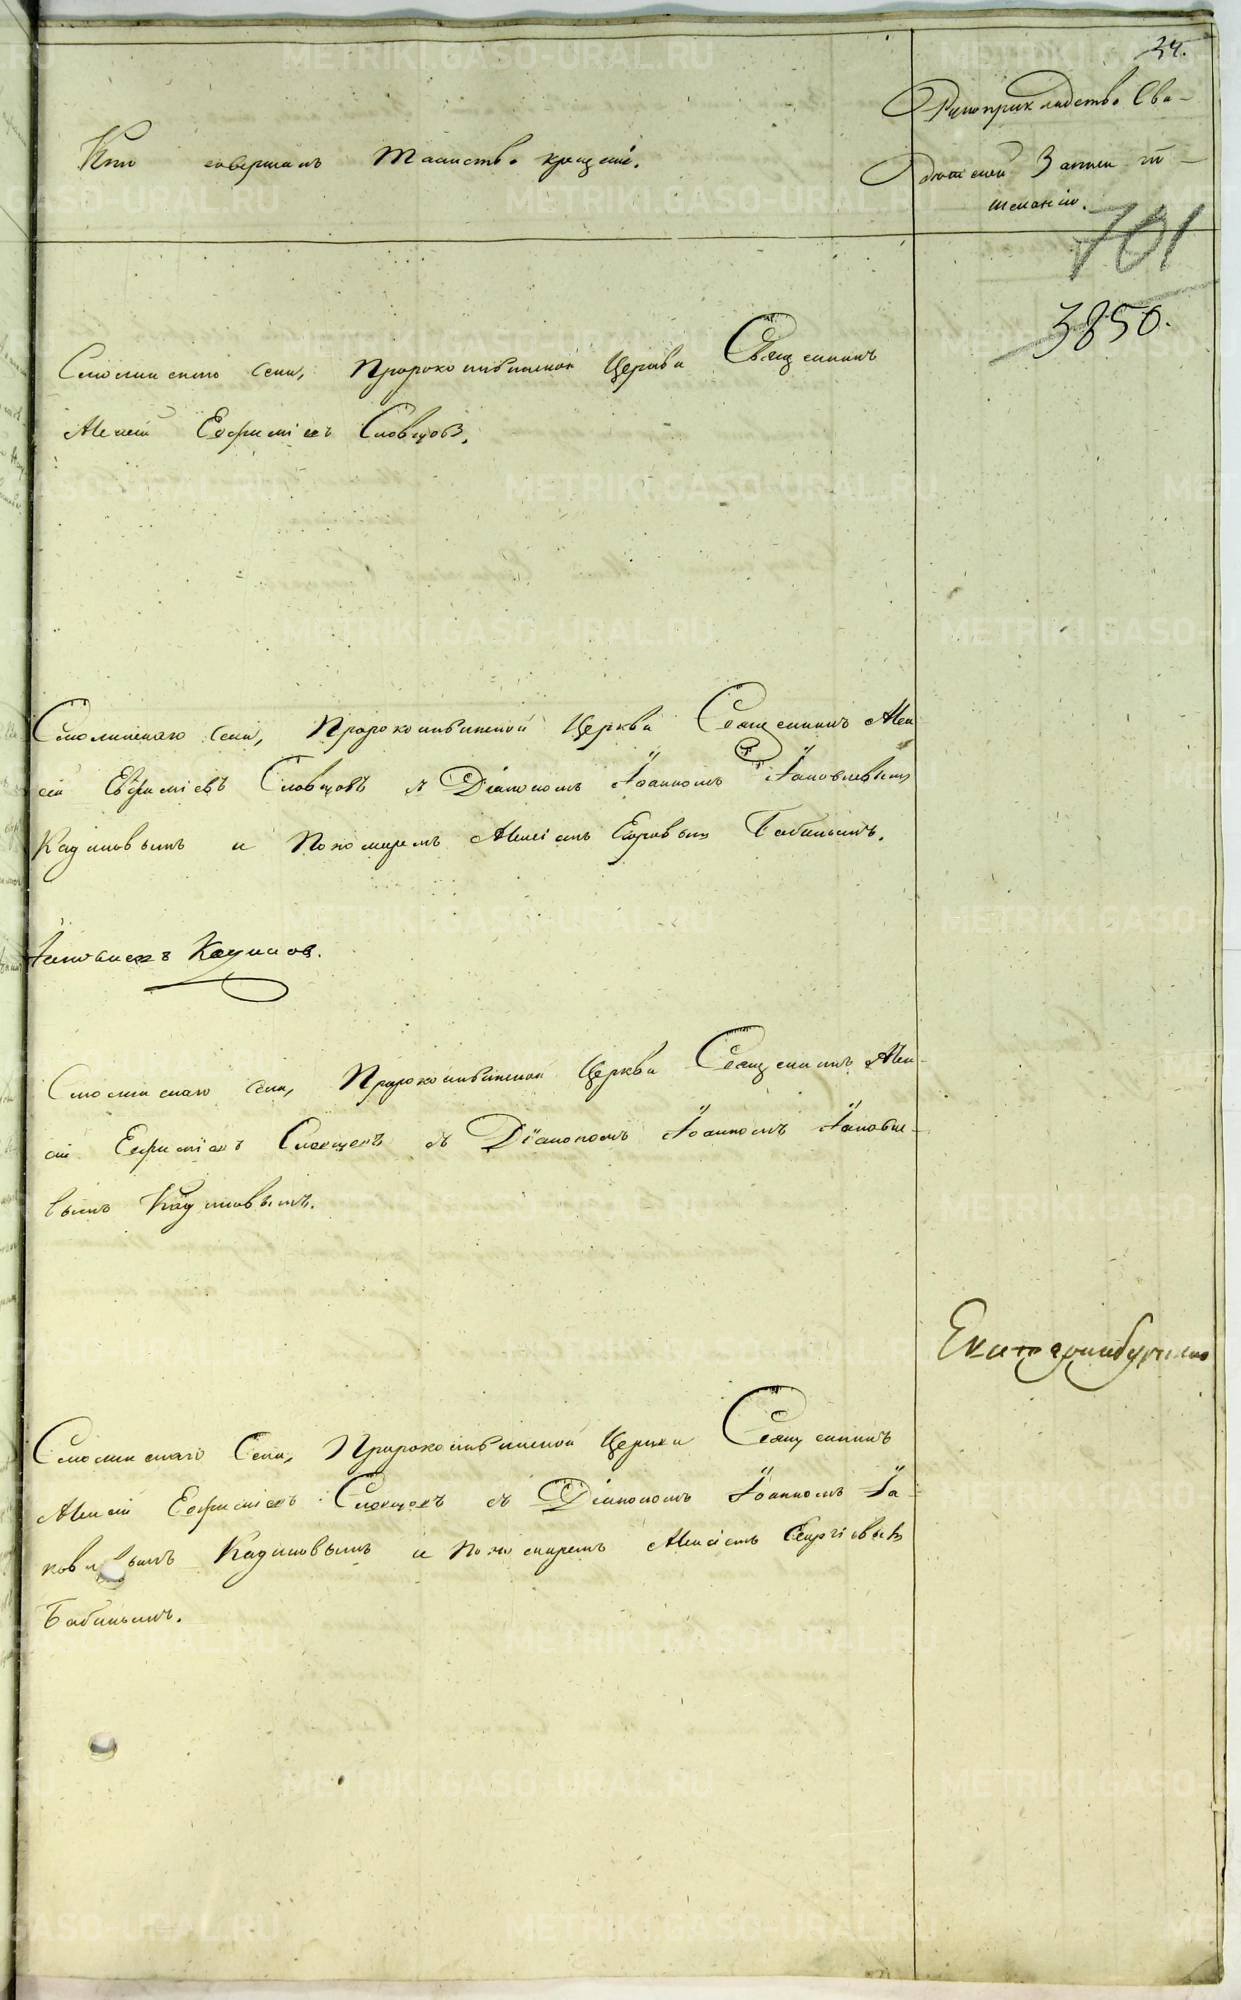 34.
Кто совершалъ таинство крещенія.
Рукоприкладство Сви-
дѣтелей записи по
желанію.
701
3850.
Смолинскаго села, Пророкоильинской Церкви Священникъ
Алексій Евфиміевъ Словцовъ.
Смолинскаго села, Пророкоильинской Церкви Священникъ Алек-
сій Евфиміевъ Словцовъ съ Діакономъ Іоанномъ Іаковлевымъ
Кадиновымъ и Пономаремъ Алексіемъ Егоровымъ Бабинымъ.
Кадинов.
Смолинскаго села, Пророкоильинской Церкви Священникъ Алек-
сій Евфиміевъ Словцовъ съ Діакономъ Іоанномъ Іаковле-
вымъ Кадиновымъ.
Екатеринбургско
Смолинскаго Села, Пророкоильинской Церкви Священникъ
Алексій Евфиміевъ Словцовъ съ Діакономъ Іоанномъ Іа-
ковлевымъ Кадиновымъ и Пономаремъ Алексіемъ Георгіевымъ
Бабинымъ.
METRIKI.GASO-URAL.RU